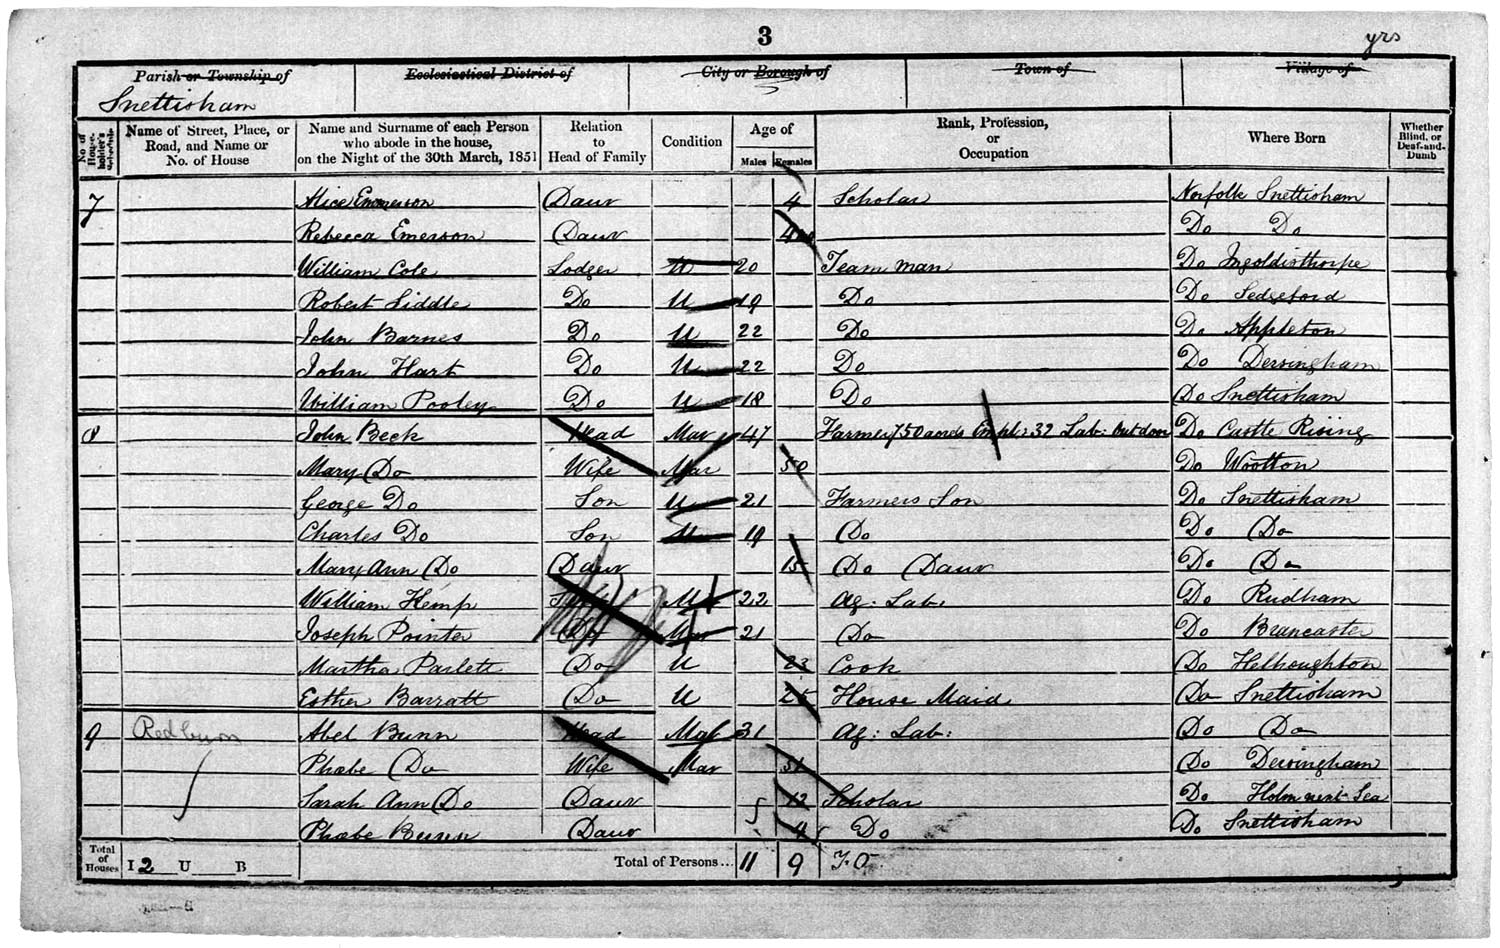 3
yrs
Parish or Township of Ecclesiastical District of City or Borough of Town of Village of
Snettisham
No. of House-holder's Schedule Name of Street, Place, or Road, and Name or No. of House Name and Surname of each Person who abode in the house, on the Night of the 30th March, 1851 Relation to Head of Family Condition Age of Males Females Rank, Profession, or Occupation Where Born Whether Blind, or Deaf-and-Dumb
7 Alice Emmerson Daur 4 Scholar Norfolk Snettisham
Rebecca Emerson Daur Do Do
William Cole Lodger U 20 Team man Do Ingoldisthorpe
Robert Liddle Do U 19 Do Do Sedgeford
John Barnes Do U 22 Do Do Appleton
John Hart Do U 22 Do Do Dersingham
William Pooley Do U 18 Do Do Snettisham
8 John Beck Head Mar 47 Farmer 750 acres Empl: 32 Lab: out door Do Castle Rising
Mary Do Wife Mar 50 Do Wootton
George Do Son U 21 Farmers Son Do Snettisham
Charles Do Son U 19 Do Do Do
Mary Ann Do Daur 15 Do Daur Do Do
William Kemp 22 Ag: Lab: Do Rudham
Joseph Pointer Do 21 Do Do Brancaster
Martha Parlett Do U 23 Cook Do Helhoughton
Esther Barratt Do U 25 House Maid Do Snettisham
9 Redburn Abel Bunn Head Mar 31 Ag: Lab: Do Do
Phœbe Do Wife Mar 31 Do Dersingham
Sarah Ann Do Daur 12 Scholar Do Holm next Sea
Phœbe Bunn Daur 4 Do Do Snettisham
Total of Houses I 2 U B Total of Persons... 11 9